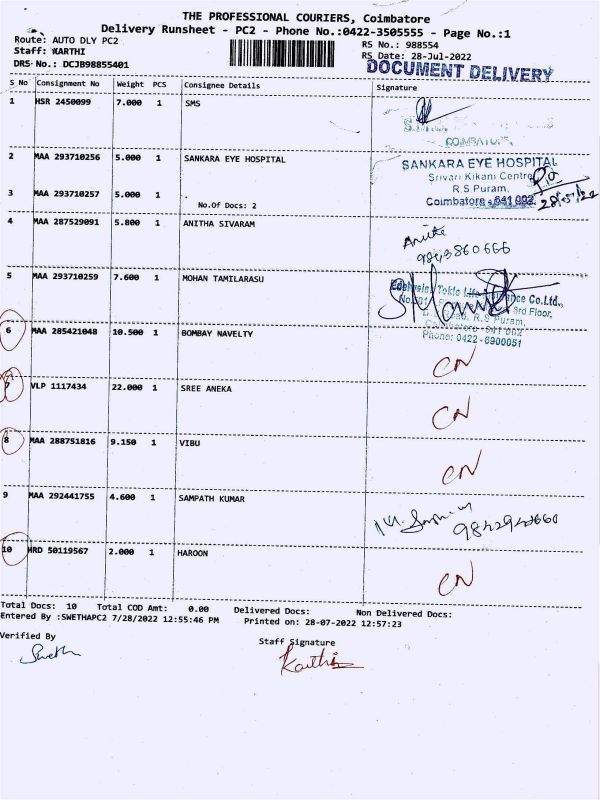 THE PROFESSIONAL COURIERS, Coimbatore
Delivery Runsheet - PC2 - Phone No.:0422-3505555 - Page No.:1
Route: AUTO DLY PC2
RS No.: 988554
Staff: KARTHI
RS Date: 28-Jul-2022
DRS No.: DCJB98855401
DOCUMENT DELIVERY
S No Consignment No Weight PCS Consignee Details Signature
1 HSR 2450099 7.000 1 SMS
COIMBATORE
2 MAA 293710256 5.000 1 SANKARA EYE HOSPITAL
SANKARA EYE HOSPITAL
Srivari Kikani Centre
R.S Puram,
3 MAA 293710257 5.000 1
Coimbatore - 641 002.
28/07/22
No.Of Docs: 2
4 MAA 287529091 5.800 1 ANITHA SIVARAM
5 MAA 293710259 7.600 1 MOHAN TAMILARASU
Edelweiss Tokio Life Insurance Co.Ltd.,
3rd Floor,
R.S Puram,
Coimbatore - 641 002
Phone: 0422 - 6900051
6 MAA 285421048 10.500 1 BOMBAY NAVELTY
CN
7 VLP 1117434 22.000 1 SREE ANEKA
CN
8 MAA 288751816 9.150 1 VIBU
CN
9 MAA 292441755 4.600 1 SAMPATH KUMAR
10 HRD 50119567 2.000 1 HAROON
CN
Total Docs: 10 Total COD Amt: 0.00 Delivered Docs: Non Delivered Docs:
Entered By :SWETHAPC2 7/28/2022 12:55:46 PM Printed on: 28-07-2022 12:57:23
Verified By
Staff Signature
Swetha
Karthi